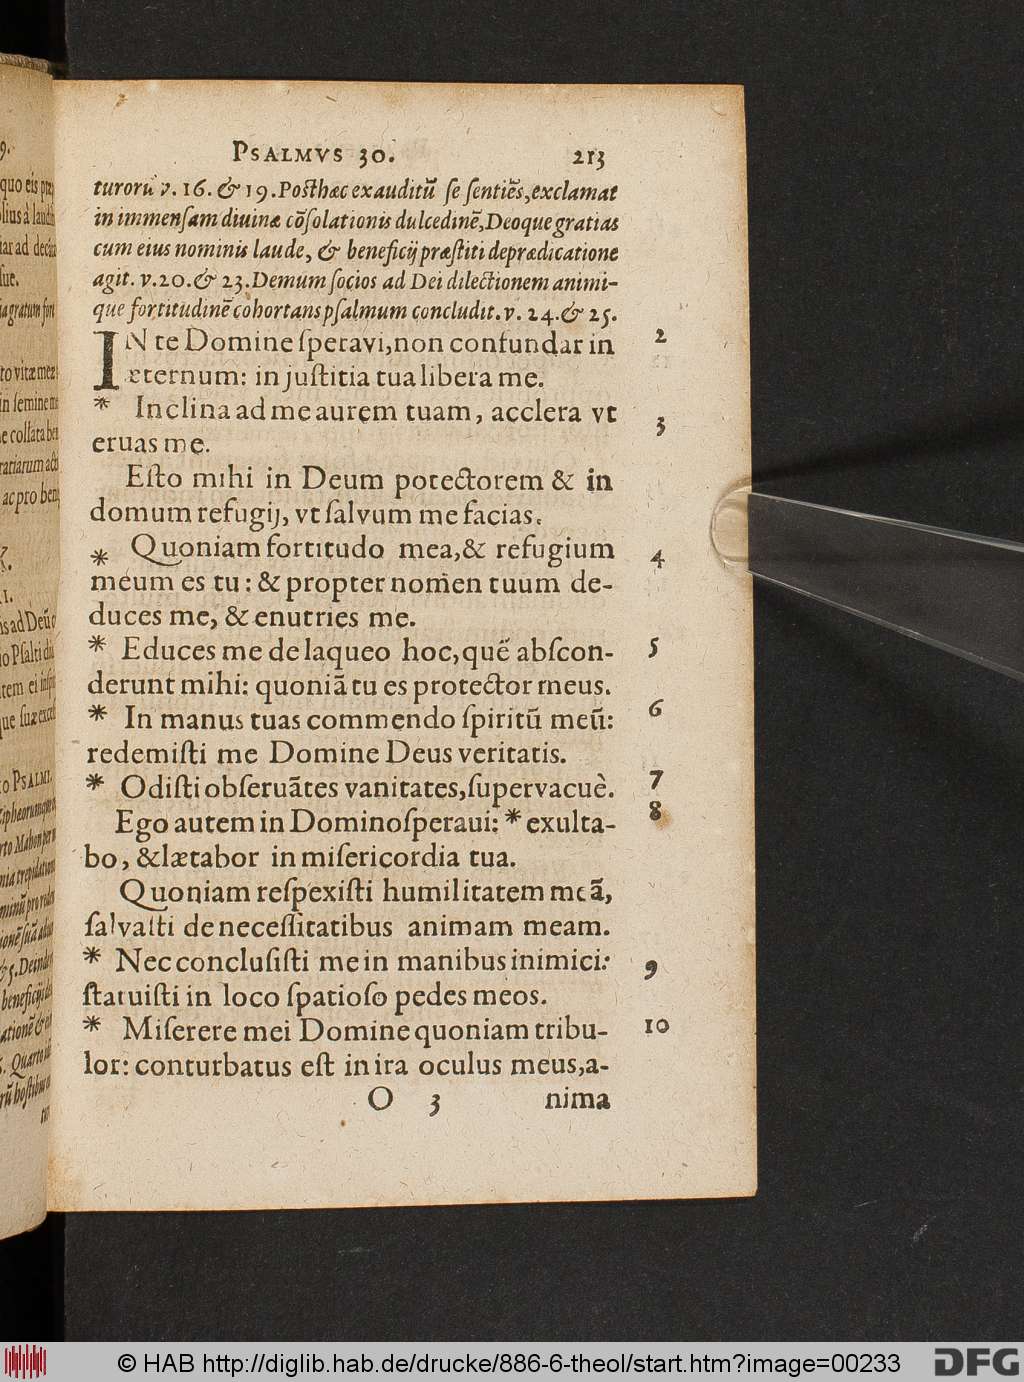 PSALMVS 30. 213
turorũ v. 16. & 19. Posthæc exauditũ se sentiẽs, exclamat
in immensam diuinæ cõsolationis dulcedinẽ, Deoque gratias
cum eius nominis laude, & beneficij præstiti deprædicatione
agit. v. 20. & 23. Demum socios ad Dei dilectionem animi-
que fortitudinẽ cohortans psalmum concludit. v. 24. & 25.
IN te Domine speravi, non confundar in 2
æternum: in justitia tua libera me.
* Inclina ad me aurem tuam, acclera vt 3
eruas me.
Esto mihi in Deum potectorem & in
domum refugij, vt salvum me facias.
* Quoniam fortitudo mea, & refugium 4
meum es tu: & propter nomen tuum de-
duces me, & enutries me.
* Educes me de laqueo hoc, quẽ abscon- 5
derunt mihi: quoniã tu es protector meus.
* In manus tuas commendo spiritũ meũ: 6
redemisti me Domine Deus veritatis.
* Odisti obseruãtes vanitates, supervacuè. 7
Ego autem in Domino speraui: * exulta- 8
bo, & lætabor in misericordia tua.
Quoniam respexisti humilitatem meã,
salvasti de necessitatibus animam meam.
* Nec conclusisti me in manibus inimici: 9
statuisti in loco spatioso pedes meos.
* Miserere mei Domine quoniam tribu- 10
lor: conturbatus est in ira oculus meus, a-
O 3 nima
© HAB http://diglib.hab.de/drucke/886-6-theol/start.htm?image=00233 DFG